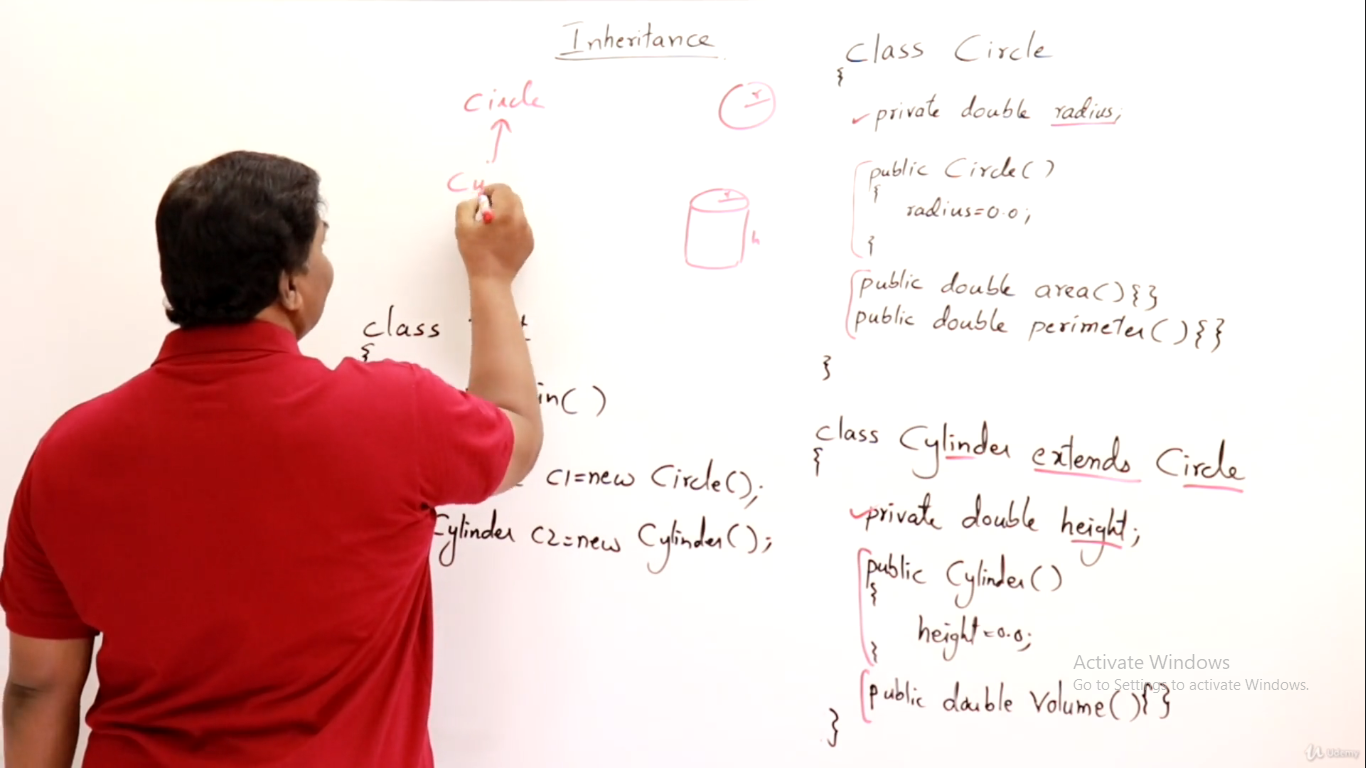 Inheritance
Circle
r
r
h
class
{
in( )
C1=new Circle();
Cylinder C2=new Cylinder();
class Circle
{
private double radius;
public Circle()
{
radius=0.0;
}
public double area(){}
public double perimeter(){}
}
class Cylinder extends Circle
{
private double height;
public Cylinder()
{
height=0.0;
}
public double Volume(){}
}
Activate Windows
Go to Settings to activate Windows.
Udemy